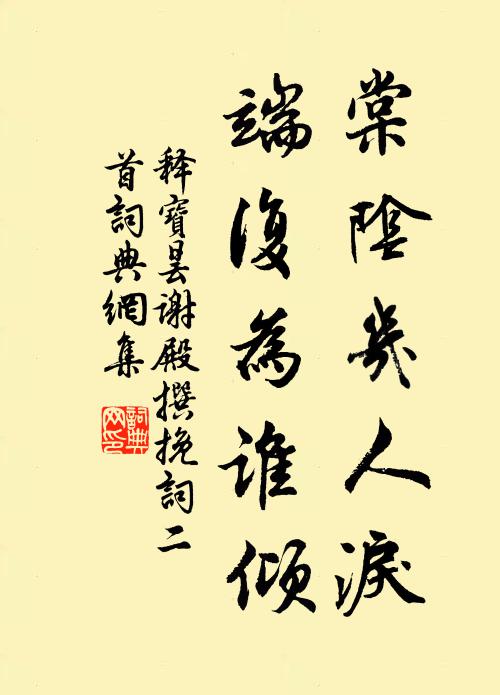 棠陰幾人淚
端復為誰傾
釋寶曇謝殿撰挽詞二
首詞典網集
詞典
网印